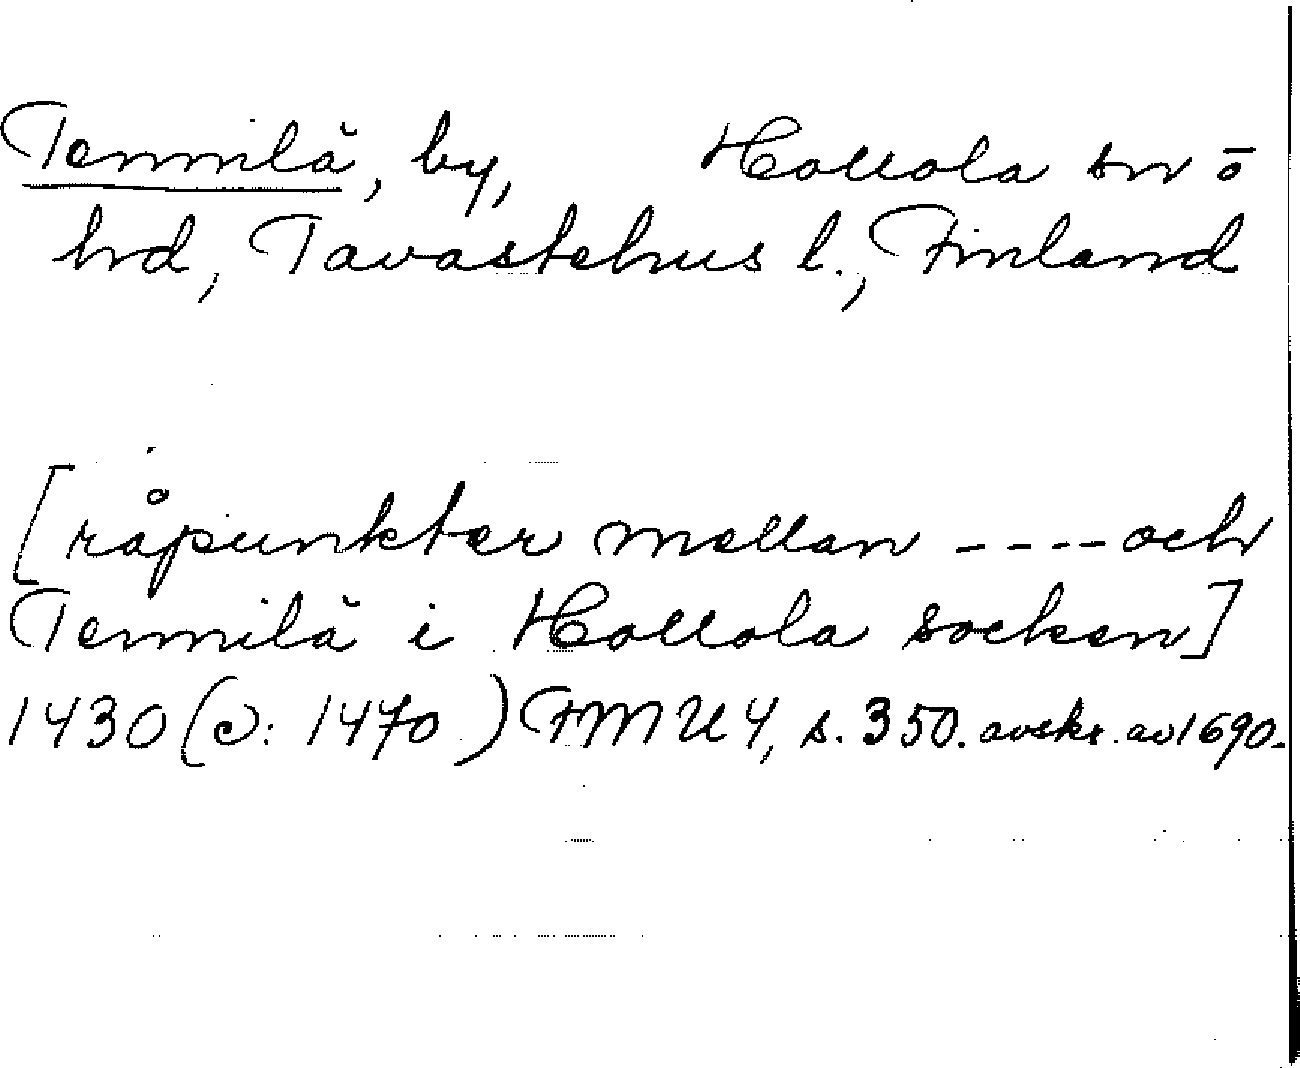 Tennilä, by, Hollola sn o
hd, Tavastehus l., Finland
[råpunkter mellan ---- och
Tennilä i Hollola socken]
1430 (c: 1470) FMU 4, s. 350. avskr. av 1690.